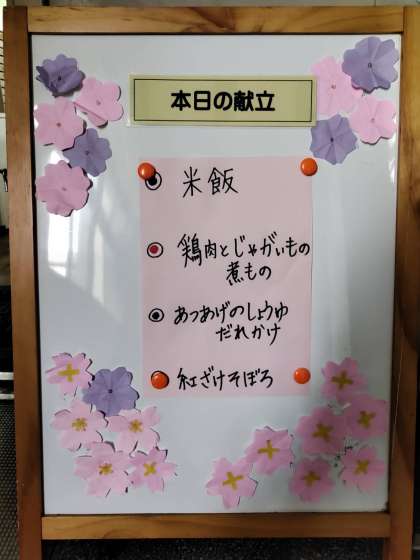 本日の献立
米飯
鶏肉とじゃがいもの
煮もの
あつあげのしょうゆ
だれかけ
紅ざけそぼろ